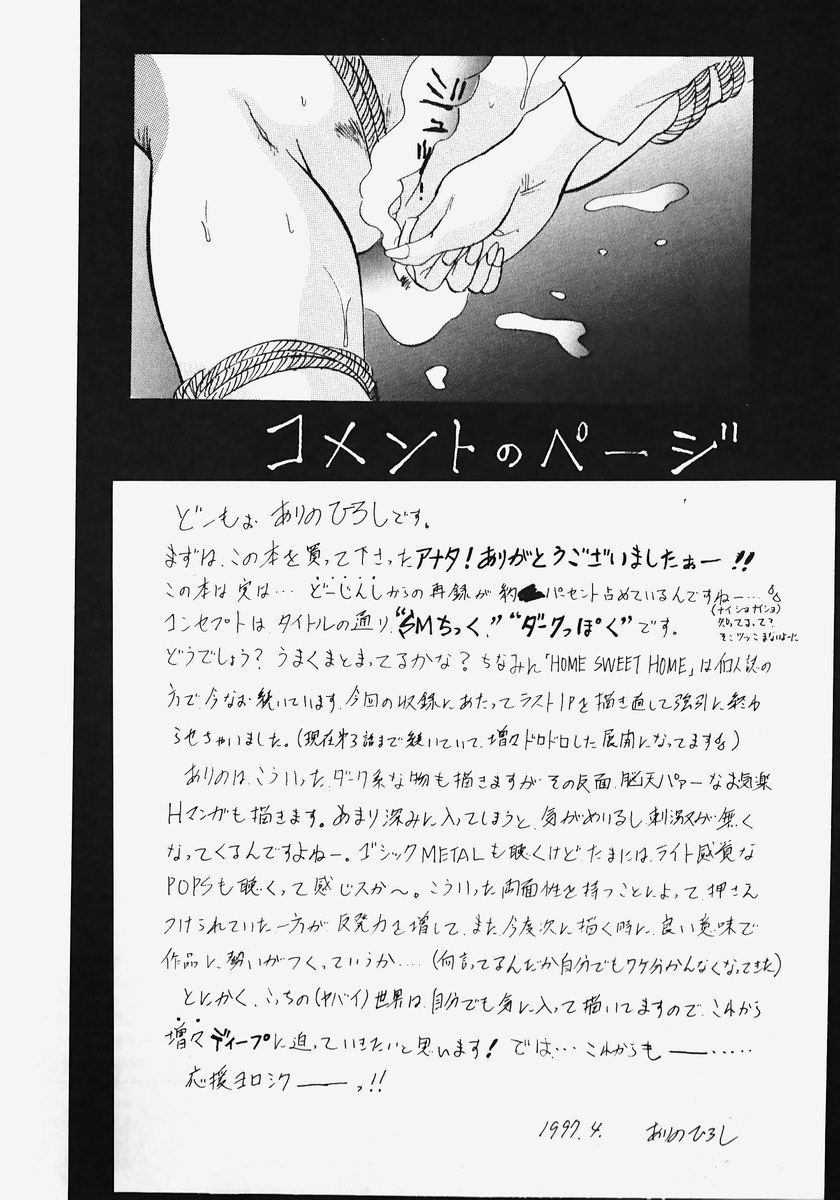 ジュ
コメントのページ
どーもぉ ありのひろしです。
まずは、この本を買って下さったアナタ!ありがとうございましたぉー!!
この本は実は… どーじんしからの再録が約 パセント占めているんですねー…
(ナイショナイショ)
知ってるって?
そこツッこまないよーに
コンセプトは、タイトルの通り、“SMちっく”“ダークっぽく”です。
どうでしょう? うまくまとまってるかな? ちなみに「HOME SWEET HOME」は個人誌の
方で今なお続いています。今回の収録にあたってラスト1Pを描き直して強引に終わ
らせちゃいました。(現在第3話まで続いていて、増々ドロドロした展開になってます)
ありのは、こういった、ダーク系な物も描きますが、その反面、脳天パァーなお気楽
Hマンガも描きます。あまり深みに入ってしまうと、気がめいるし刺激が無く
なってくるんですよねー。ゴシックMETALも聴くけど、たまには、ライト感覚な
POPSも聴くって感じスか〜。こういった両面性を持つことによって押さえ
つけられていた一方が、反発力を増して、また、今度次に描く時に、良い意味で
作品に、勢いがつくっていうか…. (何言ってるんだか自分でもワケ分かんなくなってきた)
とにかく、こっちの(ヤバイ)世界は、自分でも気に入って描いてますので、これから
増々ディープに迫っていきたいと思います! では… これからも ー……
応援ヨロシクーーっ!!
1997.4. ありのひろし